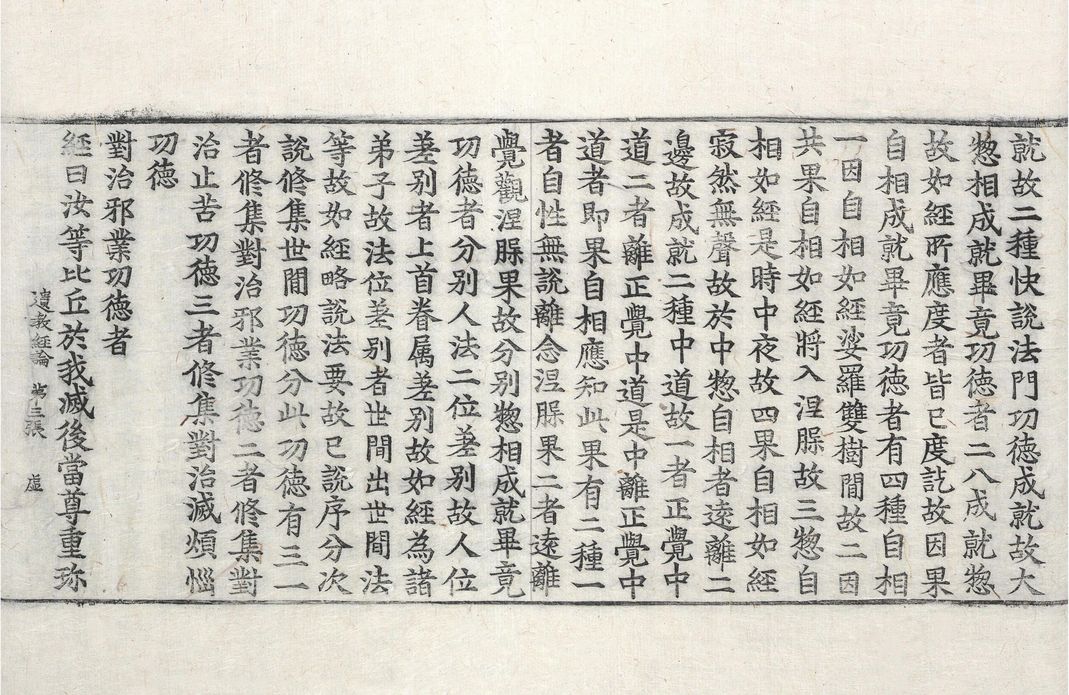 就故二種快說法門功德成就故大
惣相成就畢竟功德者二八成就惣
故如經所應度者皆已度訖故因果
自相成就畢竟功德者有四種自相
一因自相如經娑羅雙樹間故二因
共果自相如經將入涅槃故三惣自
相如經是時中夜故四果自相如經
寂然無聲故於中惣自相者遠離二
邊故成就二種中道故一者正覺中
道二者離正覺中道是中離正覺中
道者即果自相應知此果有二種一
者自性無說離念涅槃果二者遠離
覺觀涅槃果故分別惣相成就畢竟
功德者分別人法二位差別故人位
差別者上首眷属差別故如經為諸
弟子故法位差別者世間出世間法
等故如經略說法要故已說序分次
說修集世間功德分此功德有三一
者修集對治邪業功德二者修集對
治止苦功德三者修集對治滅煩惱
功德
對治邪業功德者
經曰汝等比丘於我滅後當尊重珎
遺教經論 第三張 虛